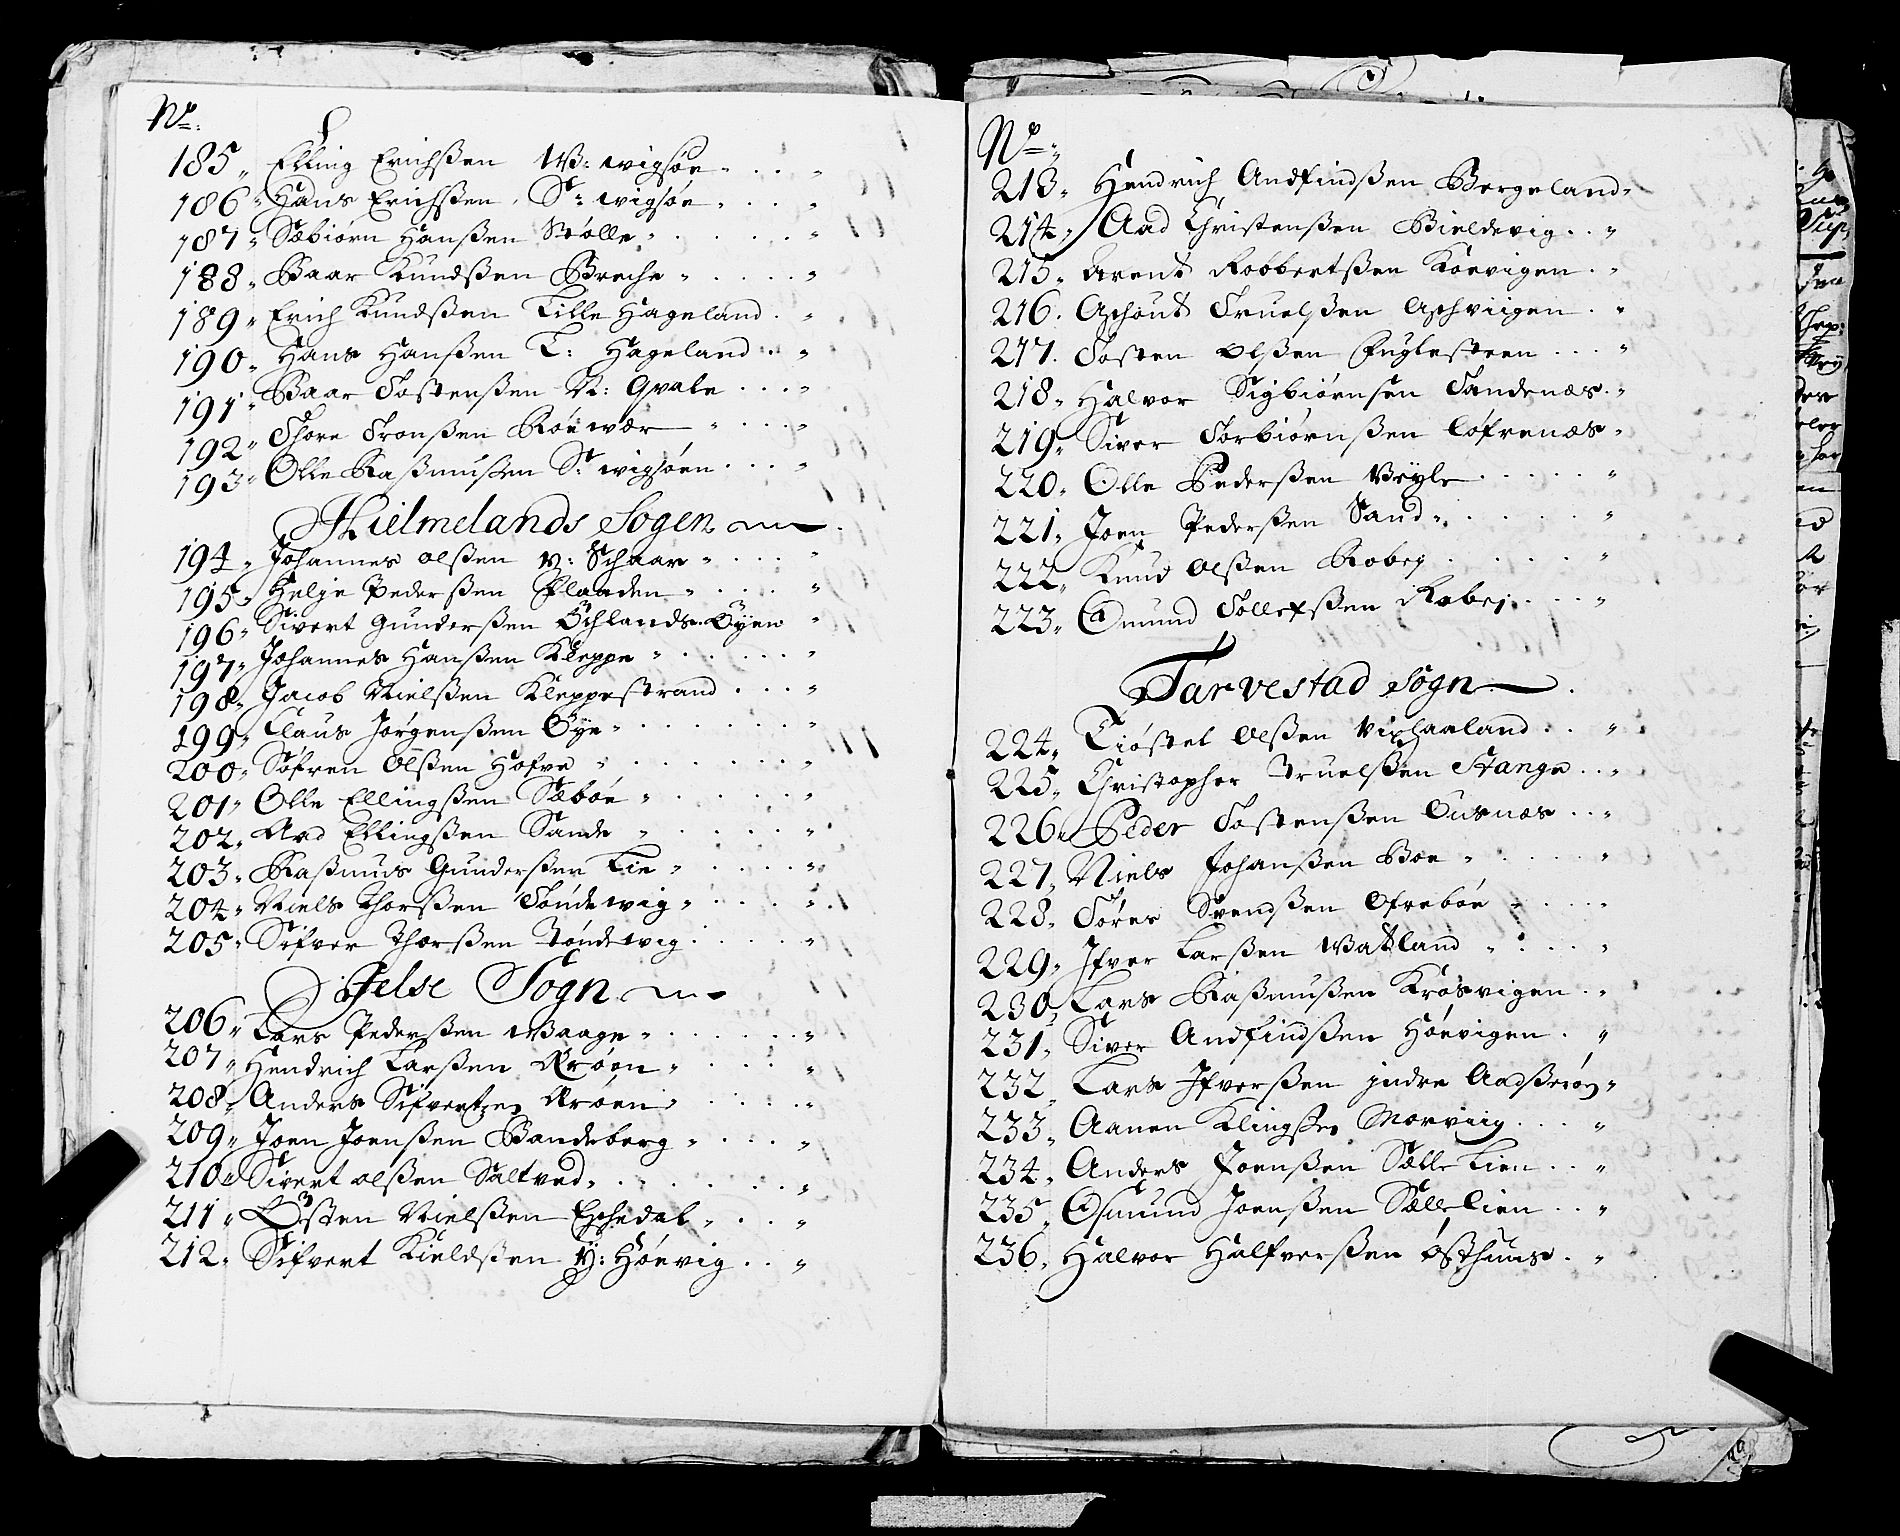 No:
185 „ Elling Erichßen W: wigsøe
186 „ Hans Erichßen S: wigsøe
187 „ Sæbiørn Hanßen Stølle
188 „ Baar Knudßen Breche
189 „ Erich Knudßen Lille Hageland
190 „ Hans Hanßen L: Hageland
191 „ Baar Tostenßen N: Qvale
192 „ Thore Tronßen Røe wær
193 „ Olle Raßmußen S: wigsøen
Hielmelands Sogen
194 „ Johannes olßen V: Schaar
195 „ Helge Pederßen Flaaden
196 „ Sivert Gunderßen Øchlands Øyen
197 „ Johannes Hanßen Kleppe
198 „ Jacob Nielßen Kleppestrand
199 „ Claus Jørgenßen Øye
200 „ Søfren Olßen Hofve
201 „ Olle Ellingßen Sæbøe
202 „ Aad Ellingßen Sande
203 „ Raßmus Gunderßen Lie
204 „ Niels Thorßen Tøndewig
205 „ Sifver Thorßen Tøndewig
Jelse Sogn
206 „ Lars Pederßen Waage
207 „ Hendrich Larßen Krøen
208 „ Anders Sifvertzen Krøen
209 „ Joen Joenßen Bandeberg
210 „ Sivert olßen Saltved
211 „ Østen Nielßen Eschedal
212 „ Sifvert Kieldßen Y: Høevig
No:
213 „ Hendrich Andfindßen Bergeland
214 „ Aad Christenßen Bieldevig
215 „ Arent Robbertßen Koevigen
216 . Aschout Truelßen Aschviigen
217 . Tosten olßen Fuglesteen
218 „ Halvor Sigbiørnsen Sandenæs
219 „ Siver Torbiørnßen Løfrenæs
220 „ Olle Pederßen Vey
221 „ Joen Pederßen Sand
222 „ Knud olßen Robey
223 „ Omund Tollefßen Robej
Tarvestad Sogn
224 „ Tiøstel olßen Vixhaaland
225 „ Christopher Truelßen Stange
226 „ Peder Tostenßen Ousnæs
227 „ Niels Johanßen Boe
228 „ Søren Svendßen Ofrebøe
229 „ Ifver Larßen Watland
230 „ Lars Raßmußen Krøsvigen
231 „ Siver Andfindßen Høevigen
232 „ Lars Ifverßen jndre Aadßerøy
233 „ Aanen Klingßen Morviig
234 „ Anders Joenßen Sælle Lien
235 „ Osmund Joenßen Sælle Lien
236 „ Halvor Halfverßen østhuus